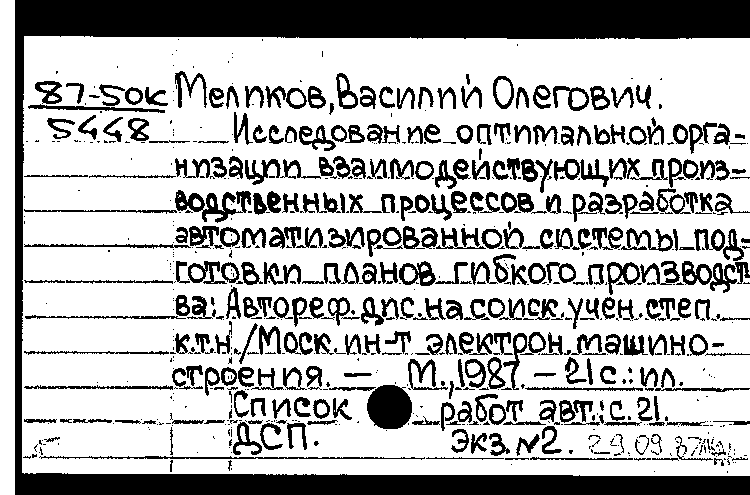 87-50к Меликов, Василий Олегович.
5448 Исследование оптимальной орга-
низации взаимодействующих произ-
водственных процессов и разработка
автоматизированной системы под-
готовки планов гибкого производст
ва: Автореф. дис. на соиск. учен. степ.
к.т.н. / Моск. ин-т электрон. машино-
строения. — М., 1987. — 21 с.: ил.
Список работ авт.: с. 21.
ДСП. Экз. №2. 29.09.87